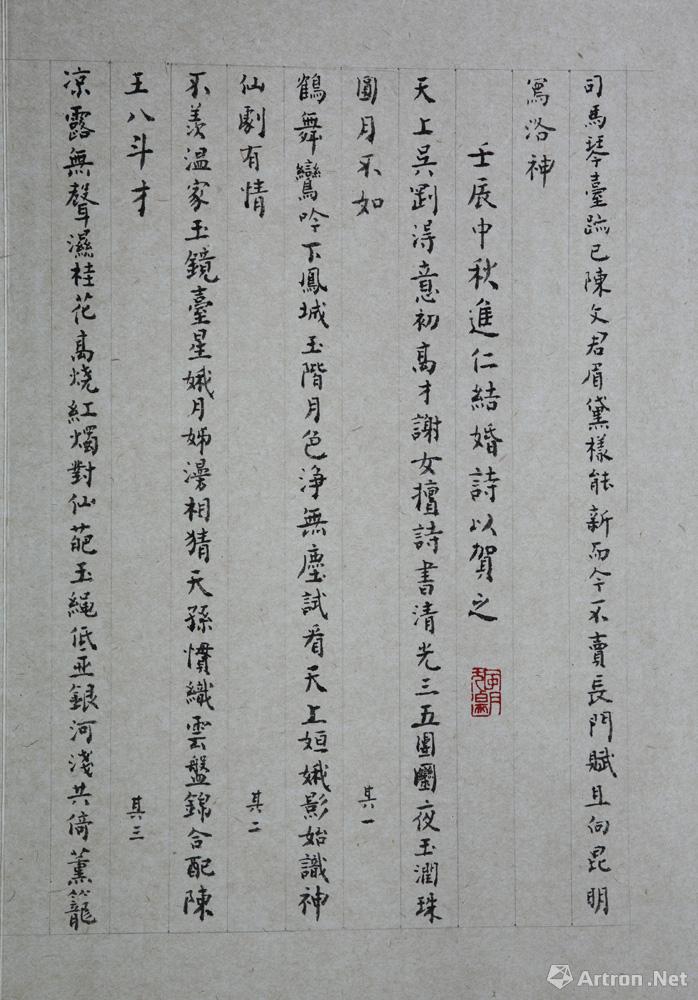 司馬琴臺跡已陳文君眉黛樣能新而今不賣長門賦且向昆明
寫洛神
壬辰中秋進仁結婚詩以賀之
天上吴劉得意初高才謝女擅詩書清光三五團圞夜玉潤珠
圓月不如
其一
鶴舞鸞吟下鳳城玉階月色淨無塵試看天上姮娥影始識神
仙劇有情
其二
不羨温家玉鏡臺星娥月姊漫相猜天孫慣織雲盤錦合配陳
王八斗才
其三
凉露無聲濕桂花高燒紅燭對仙葩玉繩低亞銀河淺共倚薰籠
Artron.Net